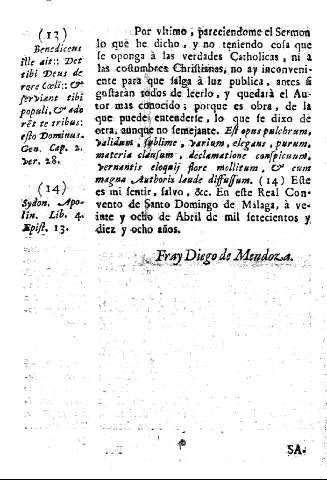 (13)
Benedicens
ille ait:: Det
tibi Deus de
rore Cœli:: &
serviant tibi
populi, & ado
rēt te tribus:
esto Dominus.
Gen. Cap. 2.
ver. 28.
(14)
Sydon. Apo-
lin. Lib. 4.
Epist. 13.
Por vltimo, pareciendome el Sermon
lo que he dicho, y no teniendo cosa que
se oponga à las verdades Catholicas, ni à
las costumbres Christianas, no ay inconveni-
ente para que salga à luz publica, antes si
gustaràn todos de leerlo, y quedarà el Au-
tor mas conocido; porque es obra, de la
que puede entenderse, lo que se dixo de
otra, aunque no semejante. Est opus pulchrum,
validum, sublime, varium, elegans, purum,
materia clausum, declamatione conspicuum,
vernantis eloquij flore mollitum, & cum
magna Authoris laude diffussum. (14) Este
es mi sentir, salvo, &c. En este Real Con-
vento de Santo Domingo de Malaga, à ve-
inte y ocho de Abril de mil setecientos y
diez y ocho años.
Fray Diego de Mendoza.
SA-